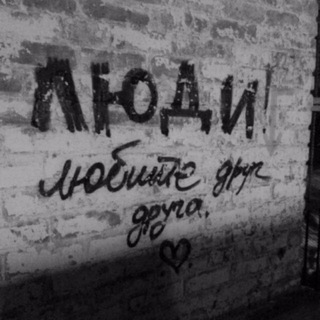 ЛЮДИ!
любите друг
друга.